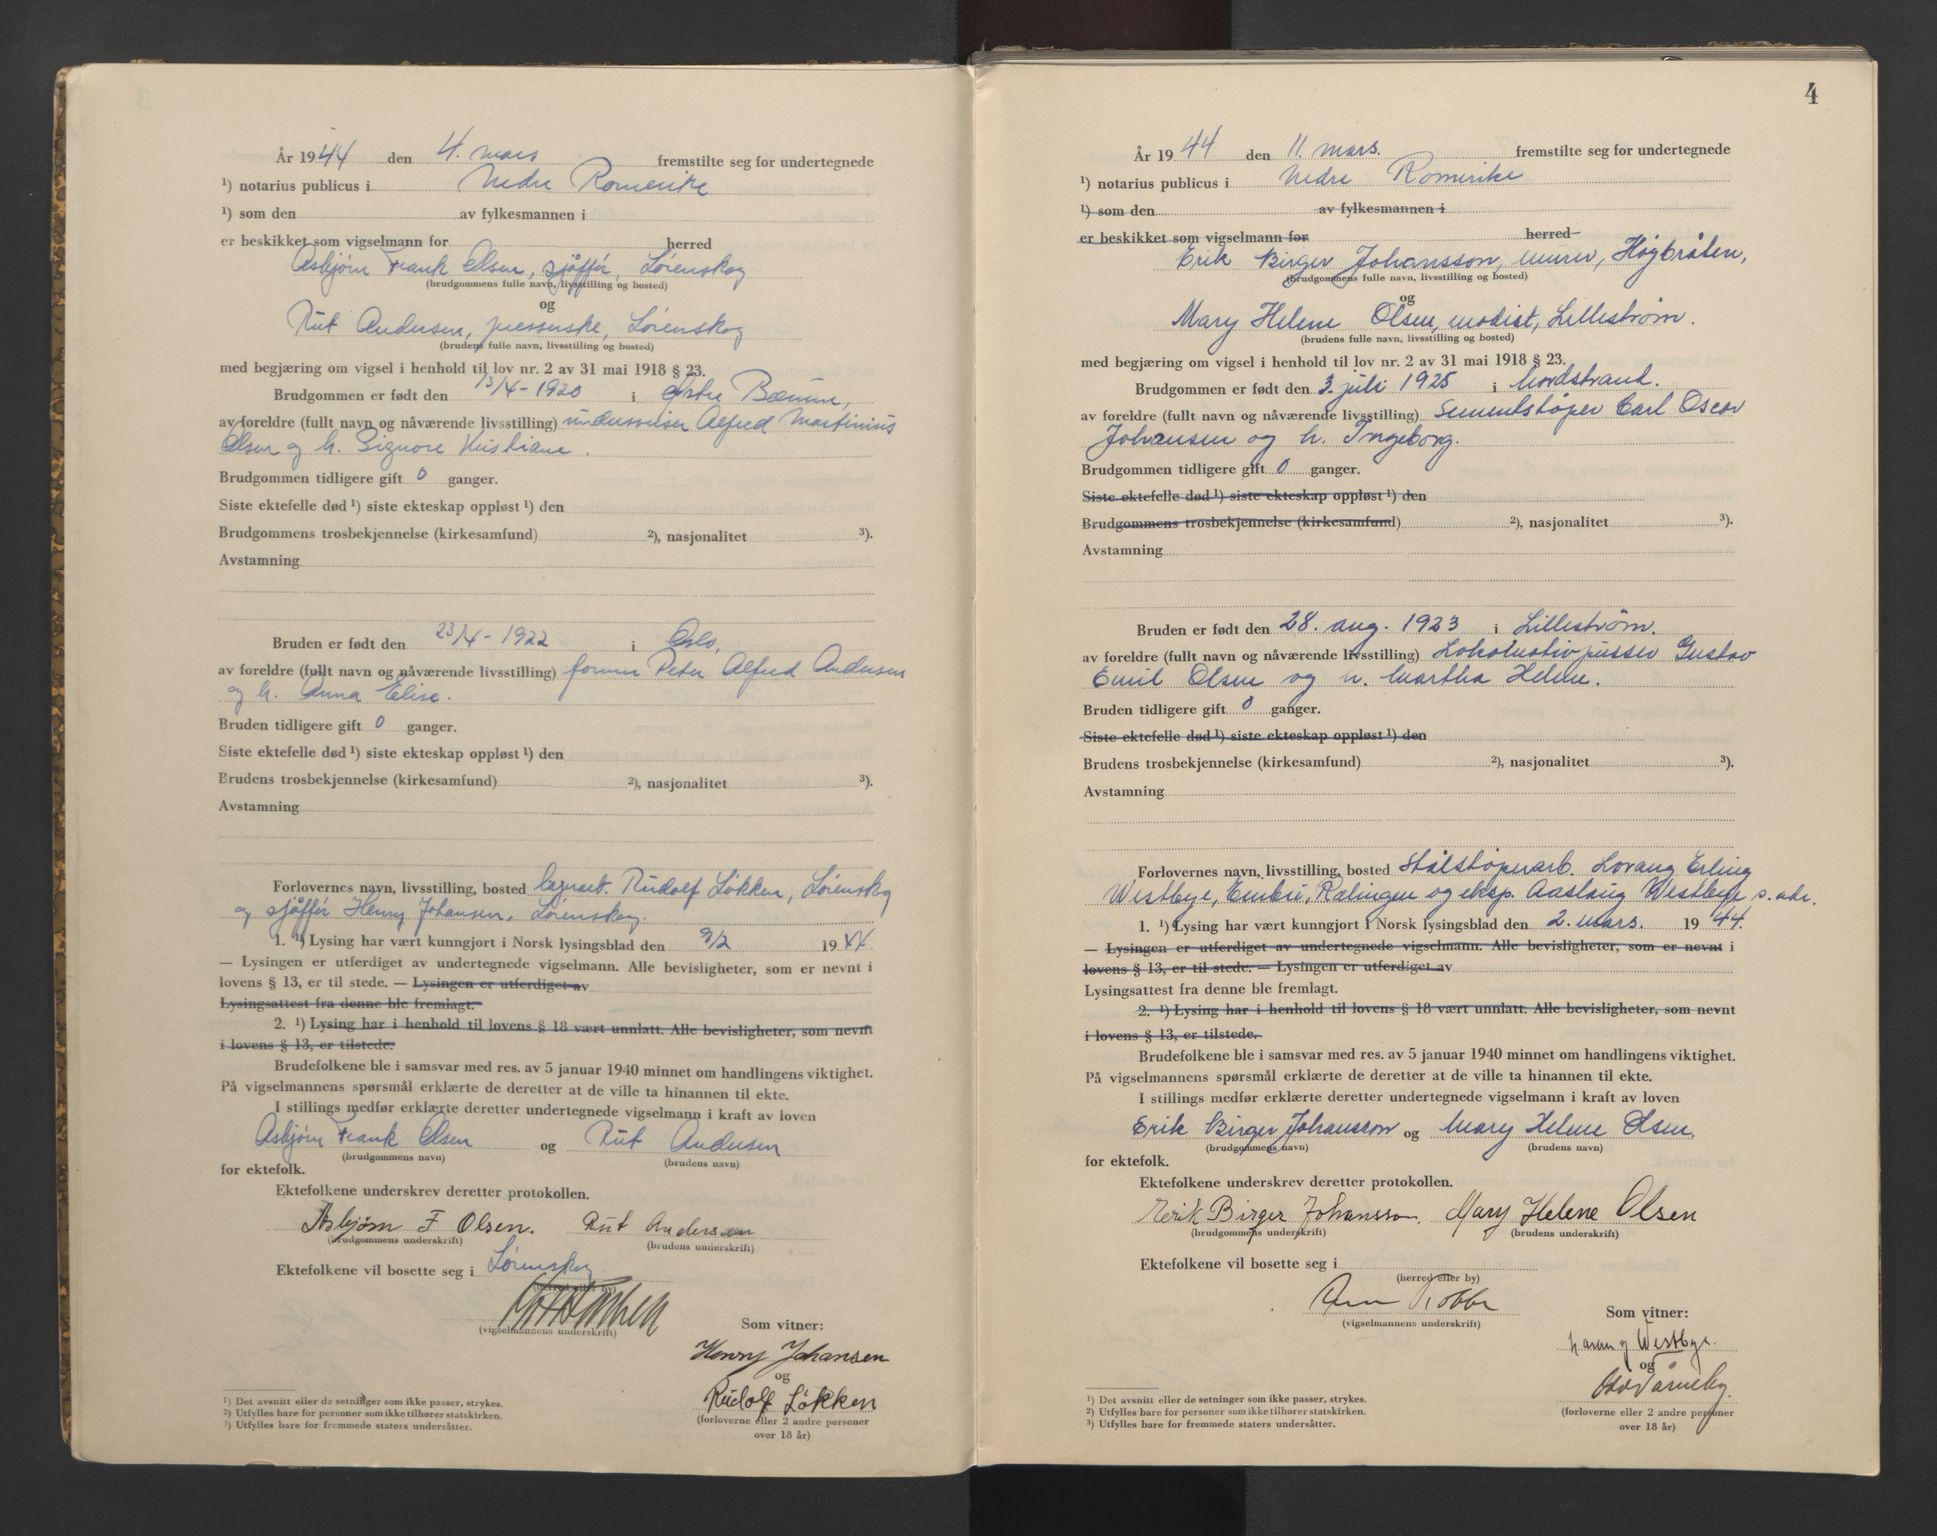 År 1944 den 4. mars fremstilte seg for undertegnede
¹) notarius publicus i Nedre Romerike
¹) som den av fylkesmannen i
er beskikket som vigselmann for herred
Asbjørn Frank Olsen, sjåffør, Lørenskog
(brudgommens fulle navn, livsstilling og bosted)
og
Rut Andersen, presserske, Lørenskog
(brudens fulle navn, livsstilling og bosted)
med begjæring om vigsel i henhold til lov nr. 2 av 31 mai 1918 § 23.
Brudgommen er født den 13/4 - 1920 i Østre Bærum,
av foreldre (fullt navn og nåværende livsstilling) underviser Alfred Martinius
Olsen og h. Signore Kristiane.
Brudgommen tidligere gift 0 ganger.
Siste ektefelle død ¹) siste ekteskap oppløst ¹) den
Brudgommens trosbekjennelse (kirkesamfund) ²), nasjonalitet ³).
Avstamning
Bruden er født den 23/4 - 1922 i Oslo,
av foreldre (fullt navn og nåværende livsstilling) former Peter Alfred Andersen
og h. Anna Elise.
Bruden tidligere gift 0 ganger.
Siste ektefelle død ¹) siste ekteskap oppløst ¹) den
Brudens trosbekjennelse (kirkesamfund) ²), nasjonalitet ³).
Avstamning
Forlovernes navn, livsstilling, bosted lagerarb. Rudolf Løkken, Lørenskog
og sjåffør Henry Johansen, Lørenskog.
1. ¹) Lysing har vært kunngjort i Norsk lysingsblad den 9/2 1944
— Lysingen er utferdiget av undertegnede vigselmann. Alle bevisligheter, som er nevnt i
lovens § 13, er til stede. — Lysingen er utferdiget av
Lysingsattest fra denne ble fremlagt.
2. ¹) Lysing har i henhold til lovens § 18 vært unnlatt. Alle bevisligheter, som nevnt
i lovens § 13, er tilstede.
Brudefolkene ble i samsvar med res. av 5 januar 1940 minnet om handlingens viktighet.
På vigselmannens spørsmål erklærte de deretter at de ville ta hinannen til ekte.
I stillings medfør erklærte deretter undertegnede vigselmann i kraft av loven
Asbjørn Frank Olsen og Rut Andersen
(brudgommens navn) (brudens navn)
for ektefolk.
Ektefolkene underskrev deretter protokollen.
Asbjørn F Olsen. Rut Andersen
(brudgommens underskrift) (brudens underskrift)
Ektefolkene vil bosette seg i Lørenskog
(herred eller by)
(vigselmannens underskrift)
Som vitner:
Henry Johansen
og
Rudolf Løkken
(forloverne eller 2 andre personer
over 18 år)
¹) Det avsnitt eller de setninger som ikke passer, strykes.
²) Utfylles bare for personer som ikke tilhører statskirken.
³) Utfylles bare for fremmede staters undersåtter.
4
År 1944 den 11. mars. fremstilte seg for undertegnede
¹) notarius publicus i Nedre Romerike
¹) som den av fylkesmannen i
er beskikket som vigselmann for herred
Erik Birger Johansson, murer, Høybråten,
(brudgommens fulle navn, livsstilling og bosted)
og
Mary Helene Olsen, modist, Lillestrøm.
(brudens fulle navn, livsstilling og bosted)
med begjæring om vigsel i henhold til lov nr. 2 av 31 mai 1918 § 23.
Brudgommen er født den 3. juli 1925 i Nordstrand.
av foreldre (fullt navn og nåværende livsstilling) Sementstøper Carl Oscar
Johansen og h. Ingeborg.
Brudgommen tidligere gift 0 ganger.
Siste ektefelle død ¹) siste ekteskap oppløst ¹) den
Brudgommens trosbekjennelse (kirkesamfund) ²), nasjonalitet ³).
Avstamning
Bruden er født den 28. aug. 1923 i Lillestrøm.
av foreldre (fullt navn og nåværende livsstilling) Lokomotivpusser Gustav
Emil Olsen og h. Martha Helene.
Bruden tidligere gift 0 ganger.
Siste ektefelle død ¹) siste ekteskap oppløst ¹) den
Brudens trosbekjennelse (kirkesamfund) ²), nasjonalitet ³).
Avstamning
Forlovernes navn, livsstilling, bosted Stålstøperarb. Lorang Erling
Westbye, Rælingen og eksp. Aaslaug Westbye s. adr.
1. ¹) Lysing har vært kunngjort i Norsk lysingsblad den 2. mars. 1944.
— Lysingen er utferdiget av undertegnede vigselmann. Alle bevisligheter, som er nevnt i
lovens § 13, er til stede. — Lysingen er utferdiget av
Lysingsattest fra denne ble fremlagt.
2. ¹) Lysing har i henhold til lovens § 18 vært unnlatt. Alle bevisligheter, som nevnt
i lovens § 13, er tilstede.
Brudefolkene ble i samsvar med res. av 5 januar 1940 minnet om handlingens viktighet.
På vigselmannens spørsmål erklærte de deretter at de ville ta hinannen til ekte.
I stillings medfør erklærte deretter undertegnede vigselmann i kraft av loven
Erik Birger Johansson og Mary Helene Olsen.
(brudgommens navn) (brudens navn)
for ektefolk.
Ektefolkene underskrev deretter protokollen.
Erik Birger Johansson. Mary Helene Olsen
(brudgommens underskrift) (brudens underskrift)
Ektefolkene vil bosette seg i
(herred eller by)
(vigselmannens underskrift)
Som vitner:
Lorang Westbye.
og
(forloverne eller 2 andre personer
over 18 år)
¹) Det avsnitt eller de setninger som ikke passer, strykes.
²) Utfylles bare for personer som ikke tilhører statskirken.
³) Utfylles bare for fremmede staters undersåtter.